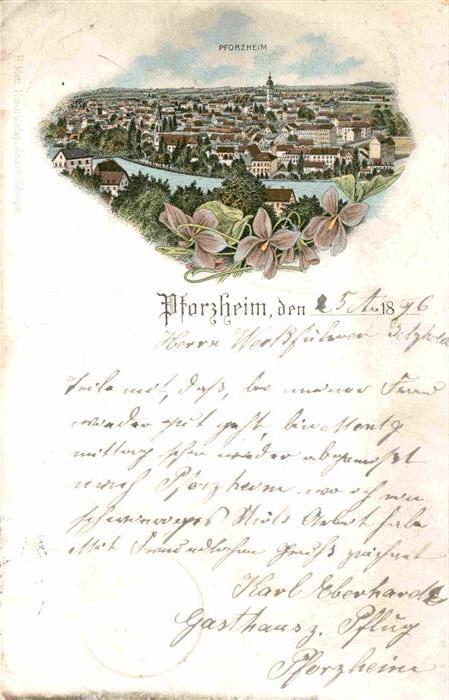 PFORZHEIM
Pforzheim, den 25 A. 1896
Herrn Werkführer
Teile mit, daß, bei meiner Frau
wieder gut geht, bin Montag
mittag schon wieder abgereist
nach Pforzheim wo ich ein
schwieriges Stück Arbeit habe
Mit Freundlichem Gruß zeichnet
Karl Eberhardt
Gasthaus z. Pflug
Pforzheim